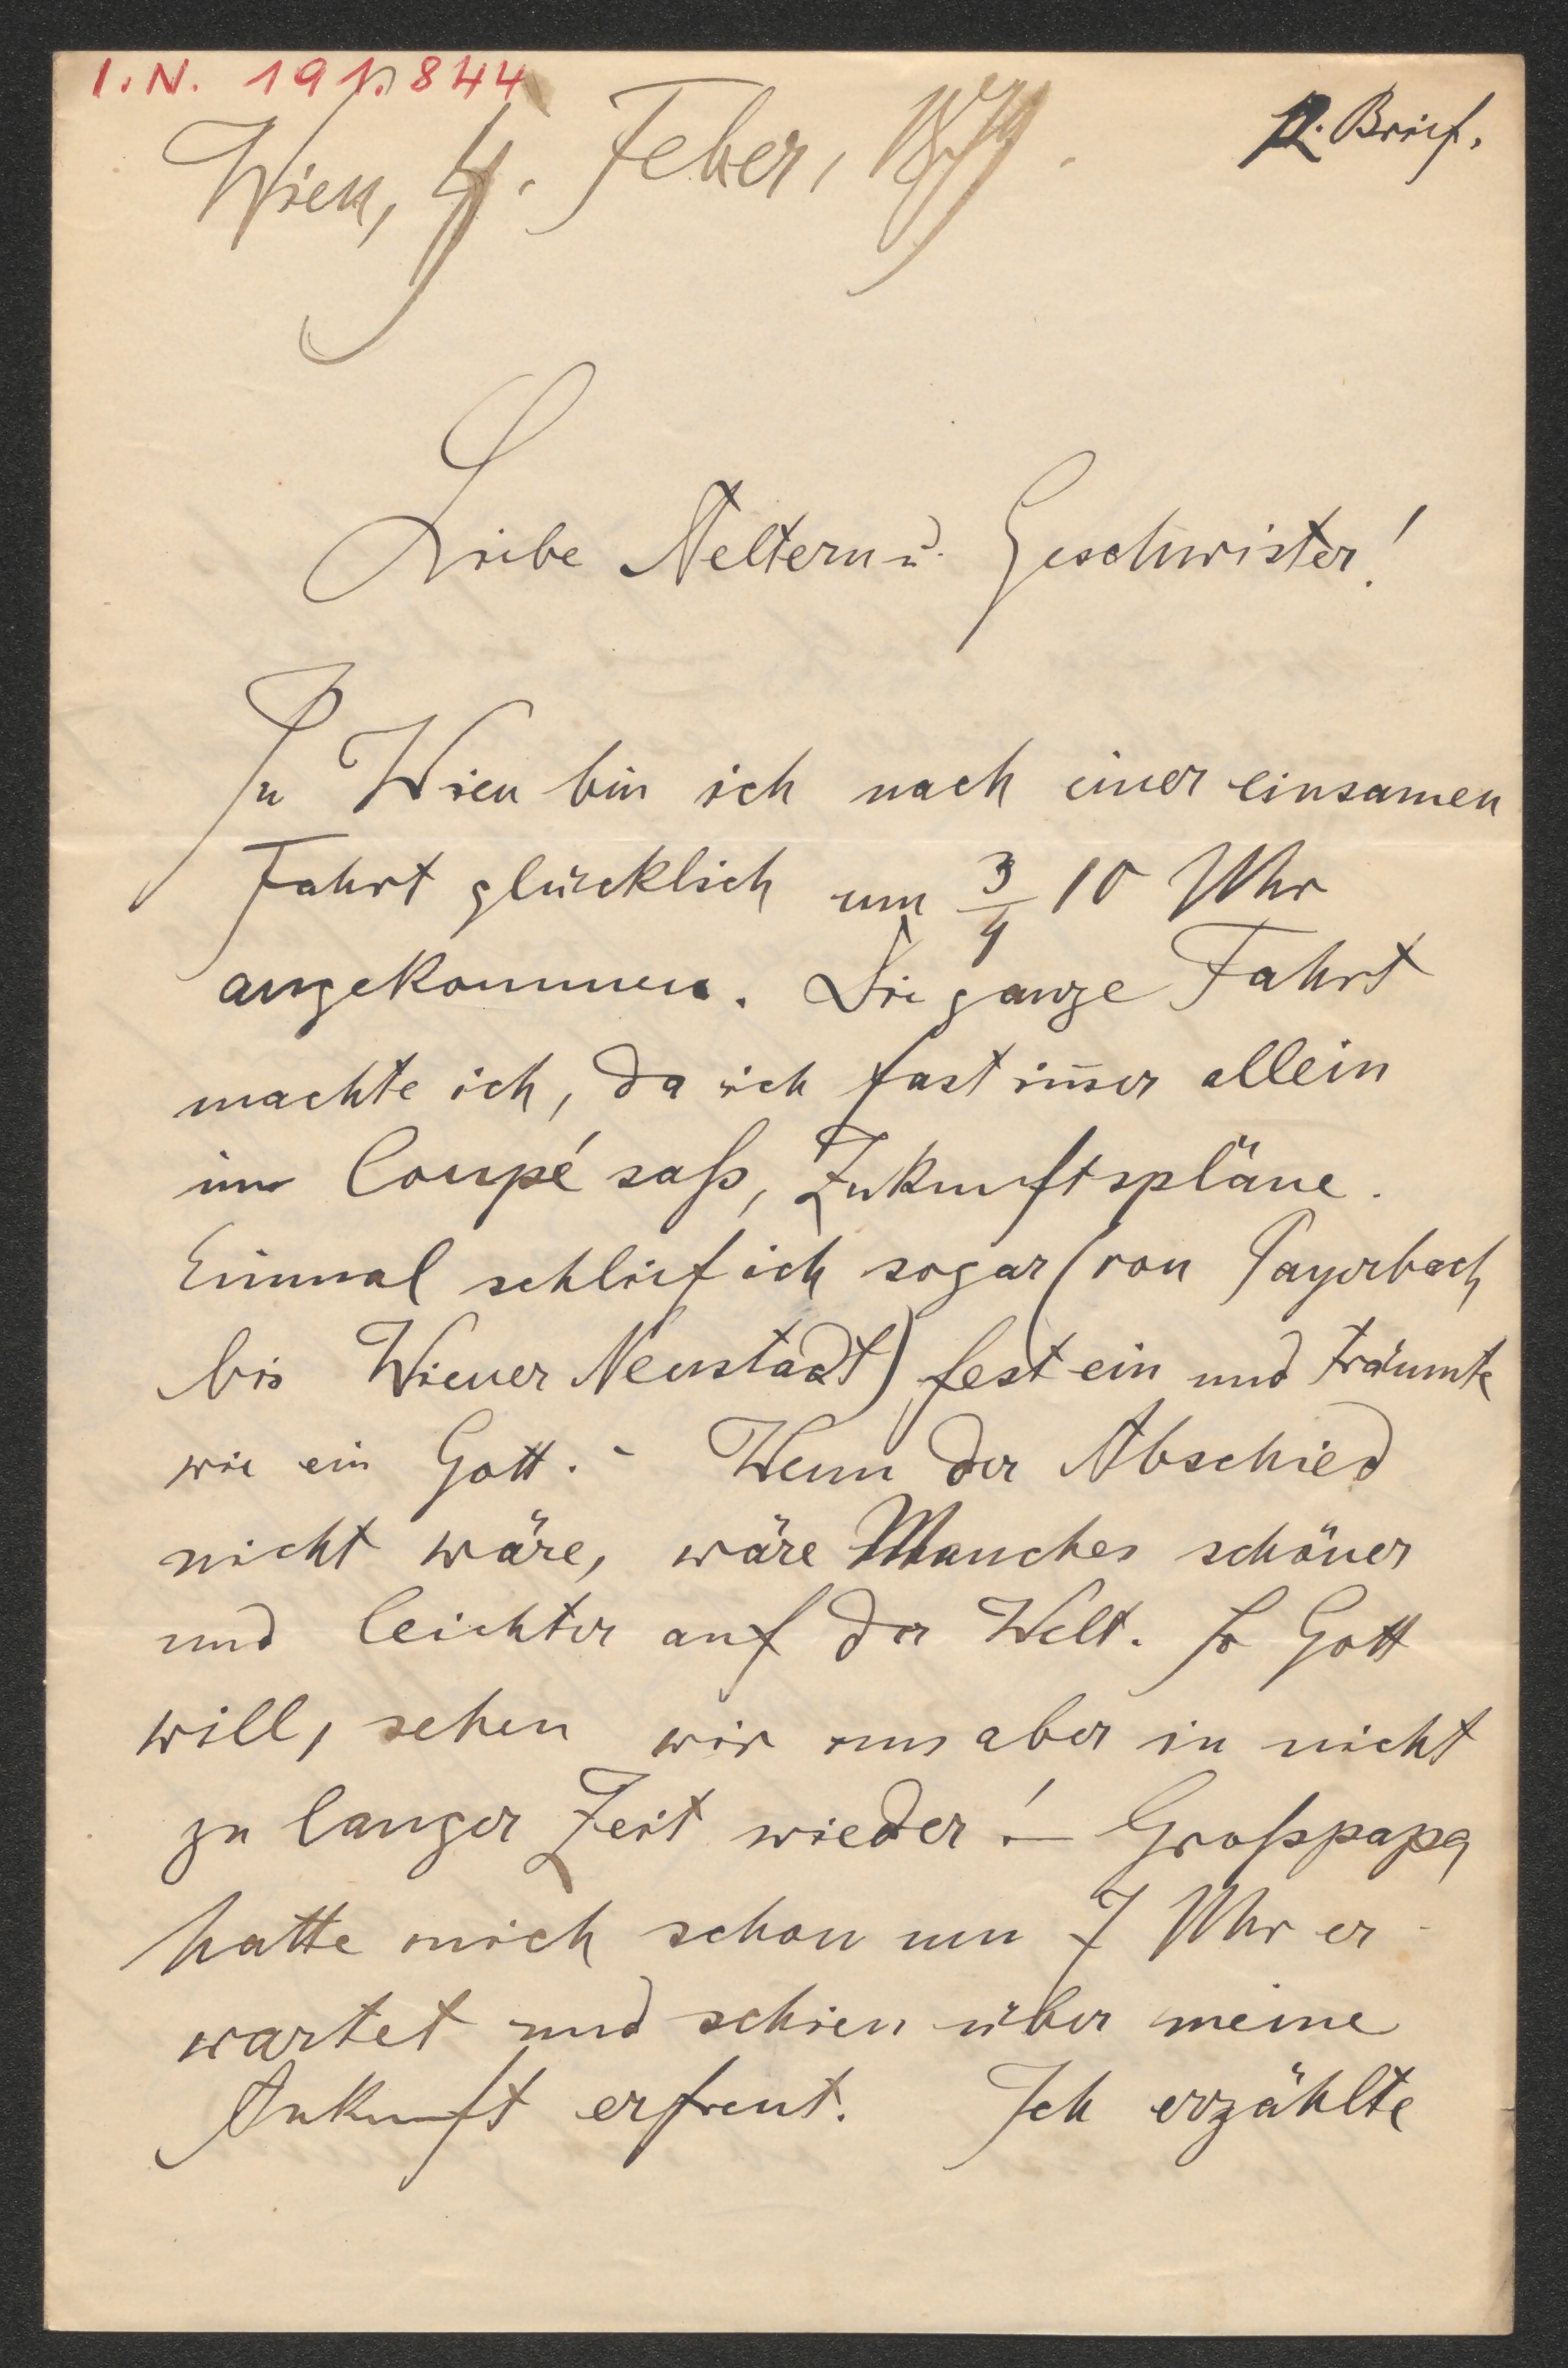 I.N. 191.844
Wien, 4. Feber, 1879.
2. Brief.
Liebe Aeltern u. Geschwister!
In Wien bin ich nach einer einsamen
Fahrt glücklich um 3/4 10 Uhr
angekommen. Die ganze Fahrt
machte ich, da ich fast im̄er allein
im Coupé saß, Zukunftspläne.
Einmal schlief ich sogar (von Payerbach
bis Wiener Neustadt) fest ein und träumte
wie ein Gott. - Wenn der Abschied
nicht wäre, wäre Manches schöner
und leichter auf der Welt. So Gott
will, sehen wir uns aber in nicht
zu langer Zeit wieder! – Großpapa
hatte mich schon um 7 Uhr er-
wartet und schien über meine
Ankunft erfreut. Ich erzählte